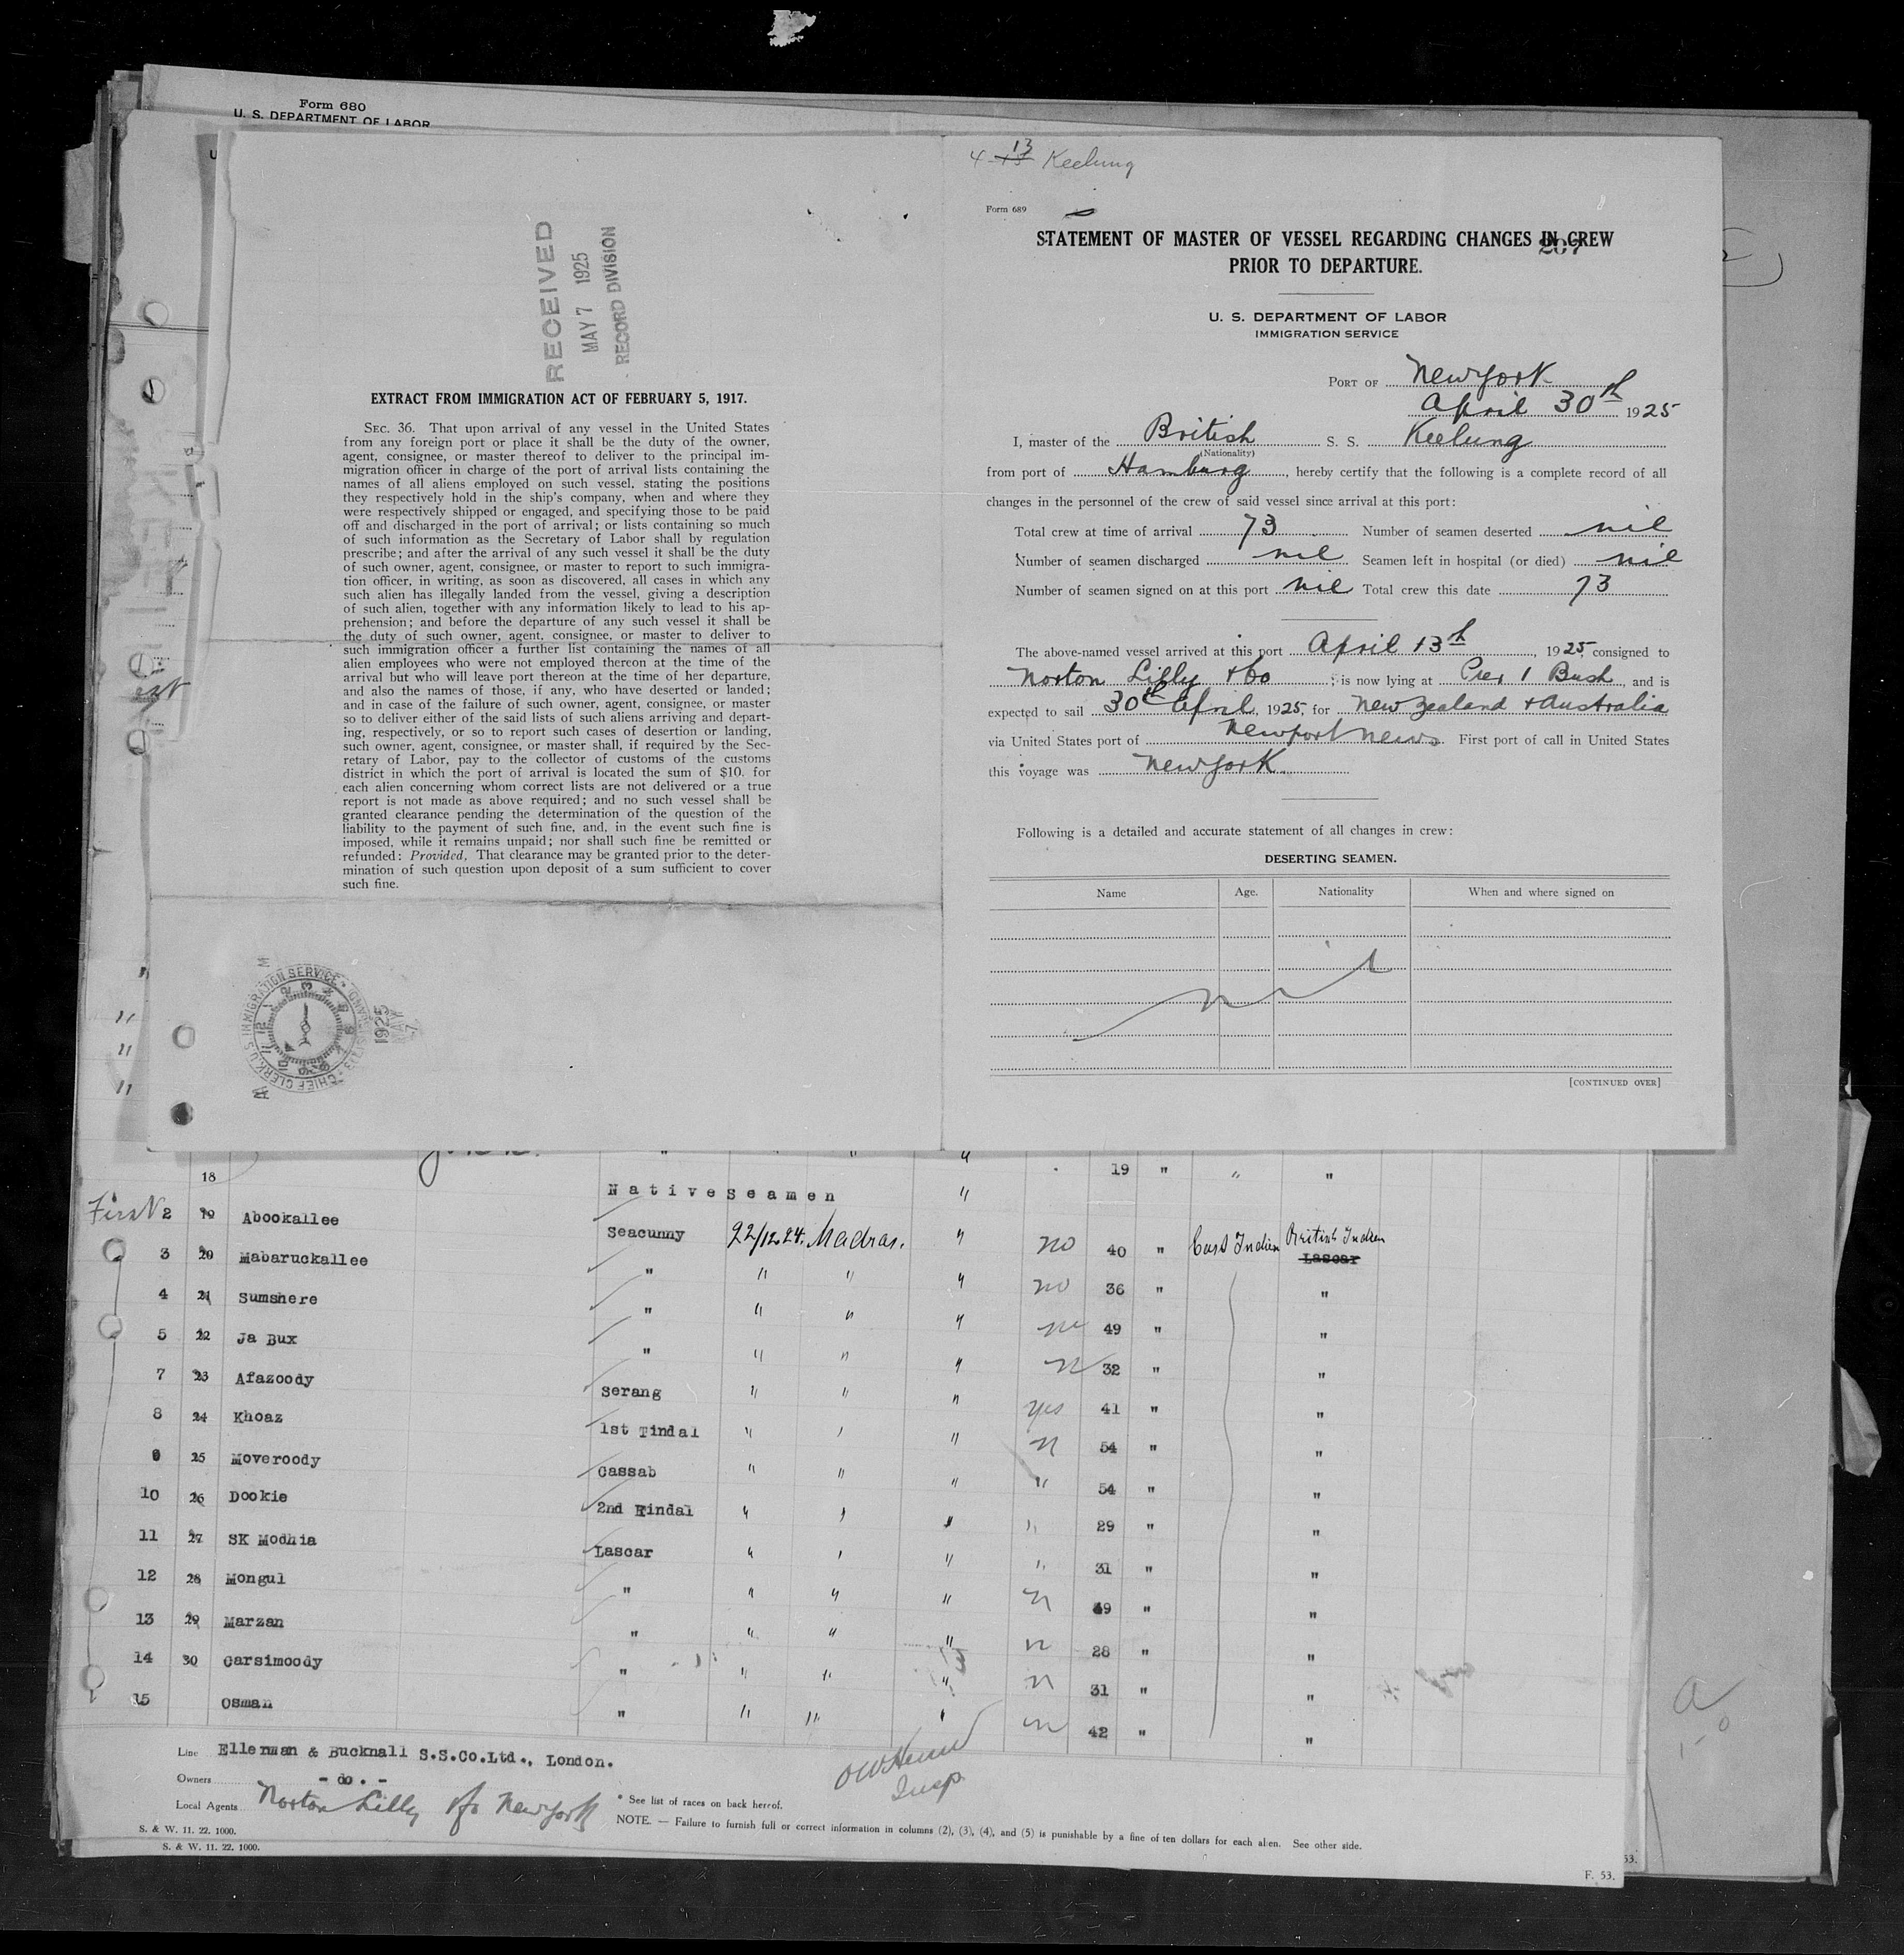 Form 680
U. S. DEPARTMENT OF LABOR
RECEIVED
MAY 7 1925
RECORD DIVISION
EXTRACT FROM IMMIGRATION ACT OF FEBRUARY 5, 1917.
SEC. 36. That upon arrival of any vessel in the United States
from any foreign port or place it shall be the duty of the owner,
agent, consignee, or master thereof to deliver to the principal im-
migration officer in charge of the port of arrival lists containing the
names of all aliens employed on such vessel, stating the positions
they respectively hold in the ship's company, when and where they
were respectively shipped or engaged, and specifying those to be paid
off and discharged in the port of arrival; or lists containing so much
of such information as the Secretary of Labor shall by regulation
prescribe; and after the arrival of any such vessel it shall be the duty
of such owner, agent, consignee, or master to report to such immigra-
tion officer, in writing, as soon as discovered, all cases in which any
such alien has illegally landed from the vessel, giving a description
of such alien, together with any information likely to lead to his ap-
prehension; and before the departure of any such vessel it shall be
the duty of such owner, agent, consignee, or master to deliver to
such immigration officer a further list containing the names of all
alien employees who were not employed thereon at the time of the
arrival but who will leave port thereon at the time of her departure,
and also the names of those, if any, who have deserted or landed;
and in case of the failure of such owner, agent, consignee, or master
so to deliver either of the said lists of such aliens arriving and depart-
ing, respectively, or so to report such cases of desertion or landing,
such owner, agent, consignee, or master shall, if required by the Sec-
retary of Labor, pay to the collector of customs of the customs
district in which the port of arrival is located the sum of $10. for
each alien concerning whom correct lists are not delivered or a true
report is not made as above required; and no such vessel shall be
granted clearance pending the determination of the question of the
liability to the payment of such fine, and, in the event such fine is
imposed, while it remains unpaid; nor shall such fine be remitted or
refunded: Provided, That clearance may be granted prior to the deter-
mination of such question upon deposit of a sum sufficient to cover
such fine.
CHIEF CLERK U.S. IMMIGRATION SERVICE
1925 MAY 7
4 13 Keelung
Form 689
STATEMENT OF MASTER OF VESSEL REGARDING CHANGES IN CREW
207
PRIOR TO DEPARTURE.
U. S. DEPARTMENT OF LABOR
IMMIGRATION SERVICE
PORT OF New York
April 30th 1925
I, master of the British S. S. Keelung
(Nationality)
from port of Hamburg, hereby certify that the following is a complete record of all
changes in the personnel of the crew of said vessel since arrival at this port:
Total crew at time of arrival 73 Number of seamen deserted nil
Number of seamen discharged nil Seamen left in hospital (or died) nil
Number of seamen signed on at this port nil Total crew this date 73
The above-named vessel arrived at this port April 13th, 1925, consigned to
Norton Lilly & Co; is now lying at Pier 1 Bush, and is
expected to sail 30th April, 1925, for New Zealand & Australia
via United States port of Newport News. First port of call in United States
this voyage was New York
Following is a detailed and accurate statement of all changes in crew:
DESERTING SEAMEN.
Name Age. Nationality When and where signed on
nil
[CONTINUED OVER]
18 " " " 19 " " "
Native Seamen "
First 2 19 Abookallee Seacunny 22/12.24. Madras. " no 40 " East Indian British Indian Lascar
3 20 Mabaruckallee " " " " no 36 " "
4 21 Sumshere " " " " no 49 " "
5 22 Ja Bux " " " " n 32 " "
7 23 Afazoody Serang " " " yes 41 " "
8 24 Khoaz 1st Tindal " " " n 54 " "
9 25 Moveroody Cassab " " " " 54 " "
10 26 Dookie 2nd Tindal " " " " 29 " "
11 27 SK Modhia Lascar " " " " 31 " "
12 28 Mongul " " " " n 49 " "
13 29 Marzan " " " " n 28 " "
14 30 Carsimoody " " " " n 31 " "
15 Osman " " " " n 42 " "
Line Ellerman & Bucknall S.S.Co.Ltd., London.
Owners - do. -
Local Agents Norton Lilly & Co New York
Insp
* See list of races on back hereof.
NOTE. — Failure to furnish full or correct information in columns (2), (3), (4), and (5) is punishable by a fine of ten dollars for each alien. See other side.
S. & W. 11. 22. 1000.
S. & W. 11. 22. 1000.
53.
F. 53.